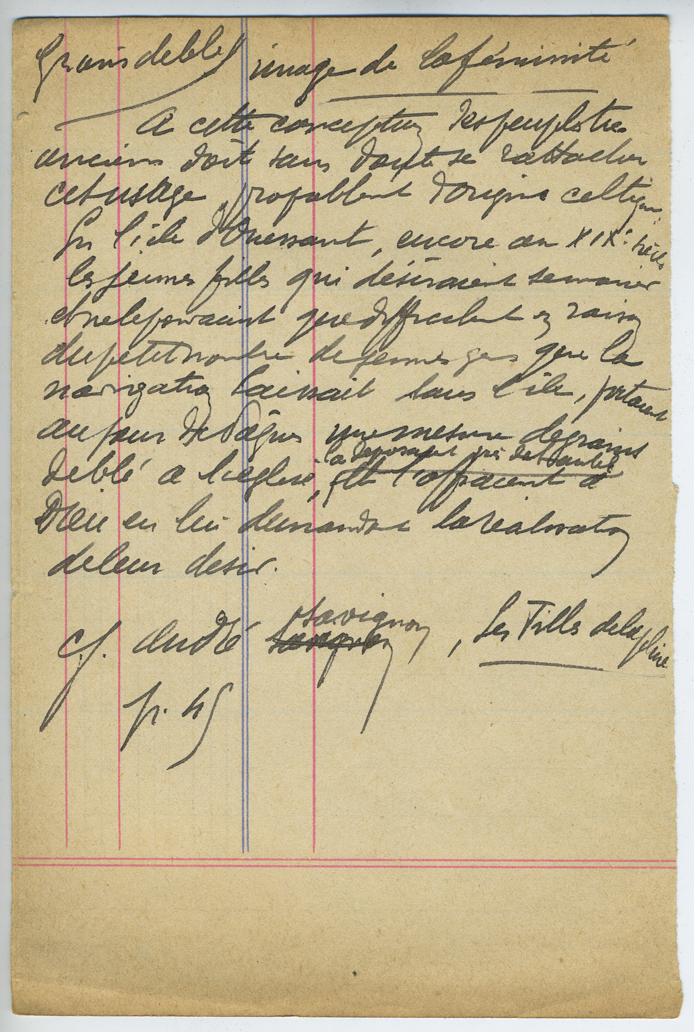 Grains de blé image de la féminité
A cette conception des peuples très
anciens doit sans doute se rattacher
cet usage, probablent d'origine celtique.
En l'île d'Ouessant, encore au XIXe siècle
les jeunes filles qui désiraient se marier
et ne le pouvaient que difficilent en raison
du petit nombre de jeunes gens que la
navigation laissait dans l'île, portaient
au jour de Pâques une mesure de grains
la déposant
de blé à l'église, et l'offraient à
Dieu en lui demandant la réalisation
de leur désir.
Savignon
cf. André, Les Filles de la pluie
p. 45